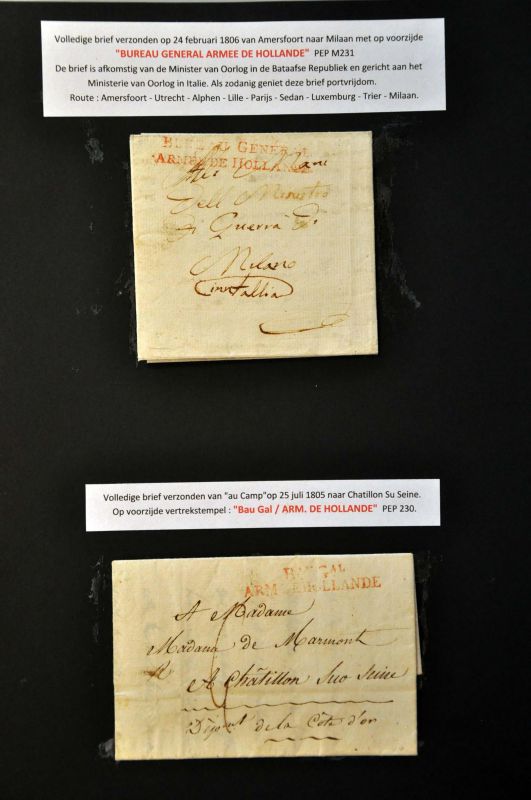 Volledige brief verzonden op 24 februari 1806 van Amersfoort naar Milaan met op voorzijde
"BUREAU GENERAL ARMEE DE HOLLANDE" PEP M231
De brief is afkomstig van de Minister van Oorlog in de Bataafse Republiek en gericht aan het
Ministerie van Oorlog in Italie. Als zodanig geniet deze brief portvrijdom.
Route : Amersfoort - Utrecht - Alphen - Lille - Parijs - Sedan - Luxemburg - Trier - Milaan.
BUREAU GENERAL
ARMEE DE HOLLANDE
Dell Ministro
di Guerra
Milano
Volledige brief verzonden van "au Camp"op 25 juli 1805 naar Chatillon Su Seine.
Op voorzijde vertrekstempel : "Bau Gal / ARM. DE HOLLANDE" PEP 230.
BAU GAL
ARM. DE HOLLANDE
A Madame
Madame de Marmont
A Châtillon Suo Seine
Dépmt de la Côte d'or